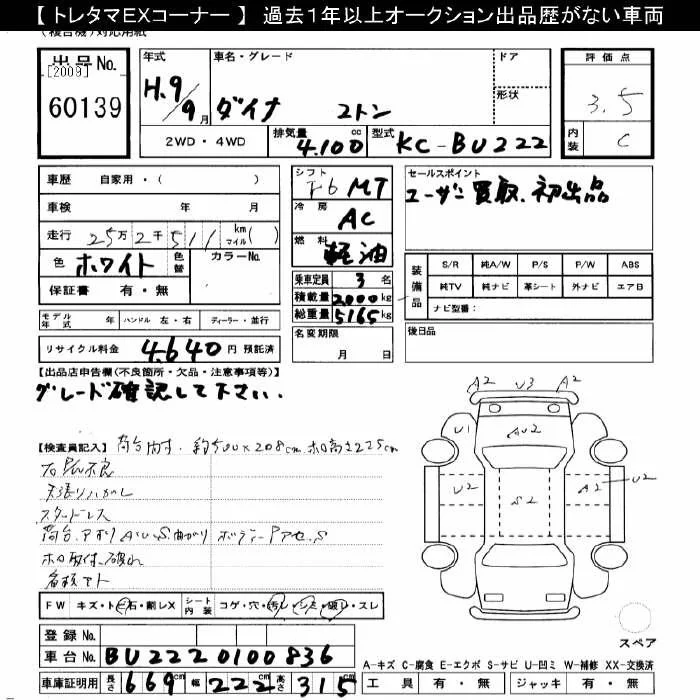 【 トレタマEXコーナー 】 過去1年以上オークション出品歴がない車両
(複合機)対応用紙
出品No.
[2009]
60139
年式
H.9/9月
車名・グレード
ダイナ 2トン
ドア
形状
2WD・4WD
排気量 4.100 cc
型式 KC-BU222
評価点
3.5
内装 C
車歴 自家用・( )
車検 年 月
走行 25万2千511 km マイル( )
色 ホワイト 色替
カラーNo.
保証書 有・無
モデル年式 年
ハンドル 左・右
ディーラー・並行
リサイクル料金 4.640 円 預託済
シフト F6 MT
冷房 AC
燃料 軽油
乗車定員 3 名
積載量 2000 kg
総重量 5165 kg
名変期限
月 日
セールスポイント
ユーザー買取.初出品
装備品
S/R 純A/W P/S P/W ABS
純TV 純ナビ 革シート 外ナビ エアB
ナビ型番:
後日品
【出品店申告欄(不良箇所・欠品・注意事項等)】
グレード確認して下さい.
【検査員記入】 荷台内寸.約500×208cm ホロ高さ225cm
天張りハガレ
スタッドレス
荷台.アオリ AU.S.曲がり ボディーPアセ.S
ホロ取付.破れ
A2 U3 A2
U1 AU2
U2 S2 A2 U2
FW キズ・トビ石・割レX
シート内装 コゲ・穴・汚レ・シミ・破レ・スレ
スペア
登録No.
車台No. BU2220100836
車庫証明用 長さ 669 cm 幅 222 cm 高さ 315 cm
A-キズ C-腐食 E-エクボ S-サビ U-凹ミ W-補修 XX-交換済
工具 有・無 ジャッキ 有・無